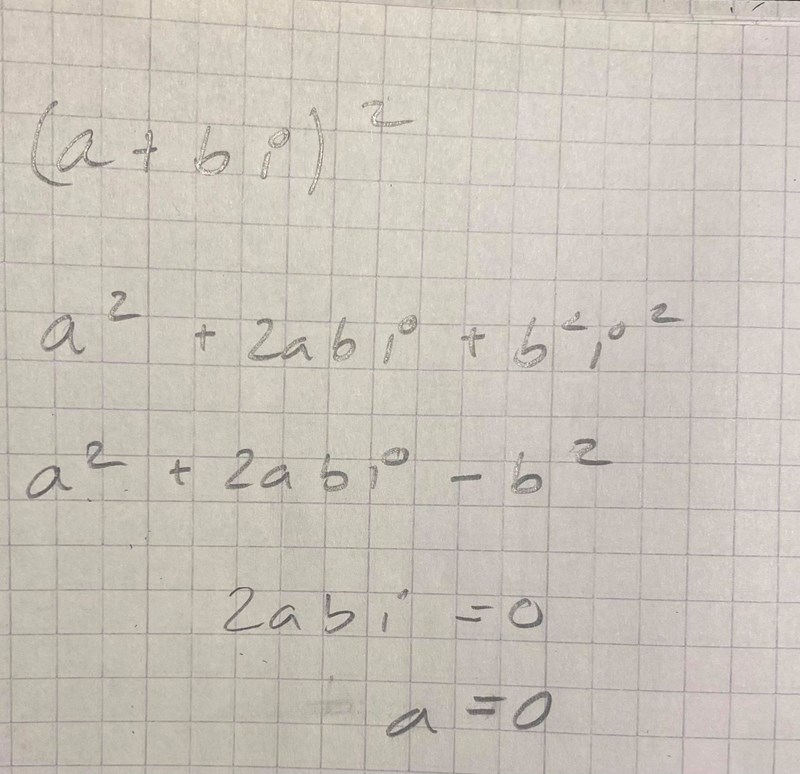 (a + bi)²
a² + 2abi + b²i²
a² + 2abi - b²
2abi = 0
a = 0